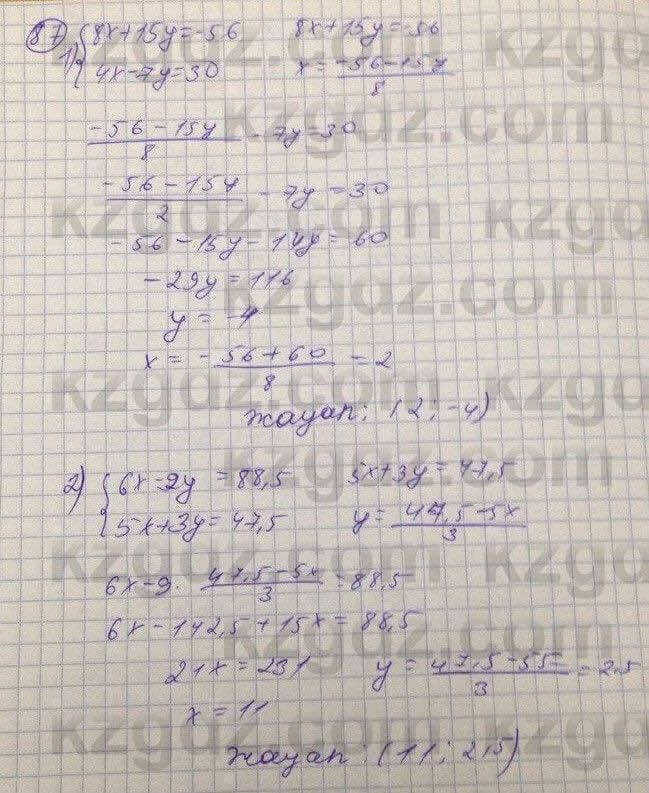 87 1) { 8x+15y=-56 8x+15y=-56
4x-7y=30 x= (-56-15y)/8
(-56-15y)/8 - 7y=30
(-56-15y)/2 - 7y=30
-56-15y-14y=60
-29y=116
y=-4
x= -(56+60)/8 = 2
Жауап: (2; -4)
2) { 6x-9y =88,5 5x+3y=47,5
5x+3y=47,5 y= (47,5-5x)/3
6x-9· (47,5-5x)/3 =88,5
6x-142,5+15x=88,5
21x=231 y= (47,5-55)/3 = 2,5
x=11
Жауап: (11; 2,5)
kzgdz.com